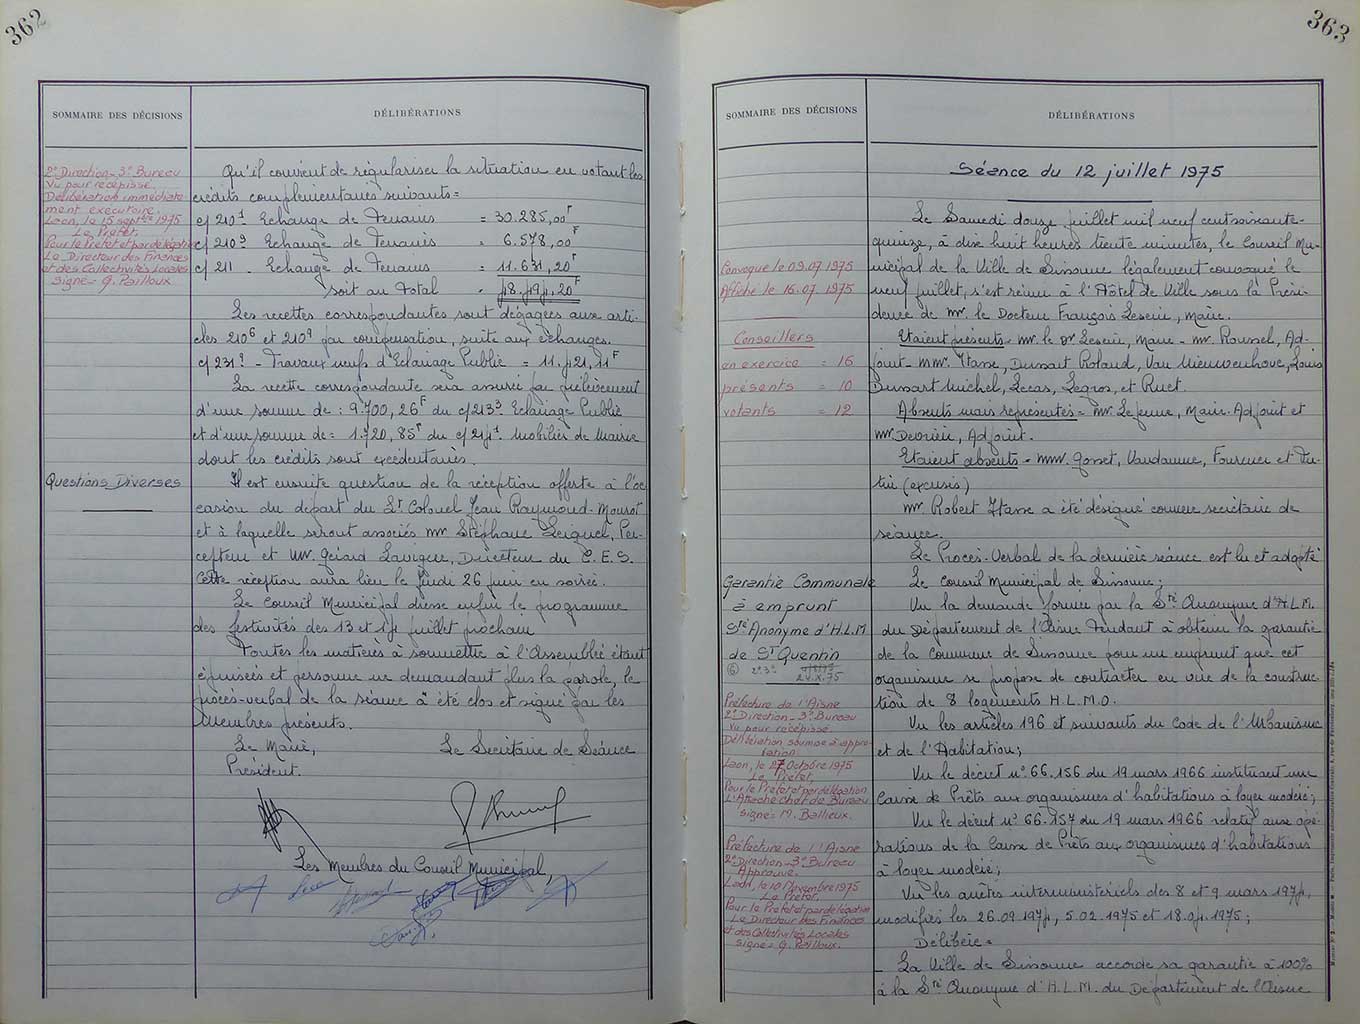 362
SOMMAIRE DES DÉCISIONS
DÉLIBÉRATIONS
2e Direction - 3e Bureau
Vu pour récépissé
Délibération immédiate
ment exécutoire.
Laon, le 15 septbre 1975
Le Préfet,
Pour le Préfet et par délégation
Le Directeur des Finances
et des Collectivités Locales
Signé = G. Pailloux
Qu'il convient de régulariser la situation en votant les
crédits complémentaires suivants =
c/ 210¹ Echange de Terrains = 30.285,00F
c/ 210⁹ Echange de Terrains = 6.578,00F
c/ 211 - Echange de Terrains = 11.631,20F
soit au total = 48.494,20F
Les recettes correspondantes sont dégagées aux arti-
cles 210⁶ et 210⁹ par compensation, suite aux échanges.
c/ 231⁹ - Travaux neufs d'Eclairage Public = 11.421,11F
La recette correspondante sera assurée par prélèvement
d'une somme de : 9.700,26F du c/213³ Eclairage Public
et d'une somme de = 1.720,85F du c/214¹ Mobilier de Mairie
dont les crédits sont excédentaires.
Questions Diverses
Il est ensuite question de la réception offerte à l'oc
casion du départ du Lt Colonel Jean Raymond-Mourot
et à laquelle seront associés MM Stéphane Leiquel, Per-
cepteur et Mr. Gérard Lavigne, Directeur du C.E.S.
Cette réception aura lieu le Jeudi 26 juin en soirée.
Le Conseil Municipal dresse enfin le programme
des festivités des 13 et 14 juillet prochain
Toutes les matières à soumettre à l'Assemblée étant
épuisées et personne ne demandant plus la parole, le
procès-verbal de la séance a été clos et signé par les
Membres présents.
Le Maire,
Le Secrétaire de Séance
Président.
Les Membres du Conseil Municipal,
363
SOMMAIRE DES DÉCISIONS
DÉLIBÉRATIONS
Séance du 12 juillet 1975
Le Samedi douze juillet mil neuf cent soixante-
quinze, à dix huit heures trente minutes, le Conseil Mu-
nicipal de la Ville de Sissonne légalement convoqué le
neuf juillet, s'est réuni à l'Hôtel de Ville sous la Prési-
dence de Mr. le Docteur François Leseur, Maire.
Convoqué le 09.07.1975
Affiché le 16.07.1975
Conseillers
en exercice = 16
présents = 10
votants = 12
Etaient présents = Mr. le Dr Leseur, Maire - Mr. Roussel, Ad-
joint - MM. Itasse, Dussart Roland, Van Nieuwenhove, Louis
Dussart Michel, Lecas, Legros, et Ruet.
Absents mais représentés = Mr. Lejeune, Maire-Adjoint et
Mr. Devrière, Adjoint.
Etaient absents = MM. Gosset, Vandamme, Fournier et Du-
tin (excusés)
Mr Robert Itasse a été désigné comme secrétaire de
séance.
Le Procès-Verbal de la dernière séance est lu et adopté
Garantie Communale
à emprunt
Sté Anonyme d'H.L.M
de St Quentin
⑥ 2e3e
24.X.75
Le Conseil Municipal de Sissonne ;
Vu la demande formée par la Sté Anonyme d'H.L.M.
du Département de l'Aisne tendant à obtenir la garantie
de la Commune de Sissonne pour un emprunt que cet
organisme se propose de contracter en vue de la construc-
tion de 8 logements H.L.M.O.
Vu les articles 196 et suivants du Code de l'Urbanisme
et de l'Habitation ;
Vu le décret no 66.156 du 19 mars 1966 instituant une
Caisse de Prêts aux organismes d'habitations à loyer modéré ;
Vu le décret no 66.157 du 19 mars 1966 relatif aux opé-
rations de la Caisse de Prêts aux organismes d'habitations
à loyer modéré ;
Vu les arrêtés interministériels des 8 et 9 mars 1974,
modifiés les 26.09.1974, 5.02.1975 et 18.04.1975 ;
Délibère =
- La Ville de Sissonne accorde sa garantie à 100%
à la Sté Anonyme d'H.L.M. du Département de l'Aisne
Préfecture de l'Aisne
2e Direction - 3e Bureau
Vu pour récépissé.
Délibération soumise à appro
bation
Laon, le 27 Octobre 1975
Le Préfet,
Pour le Préfet et par délégation
L'Attaché Chef de Bureau
Signé = M. Ballieux.
Préfecture de l'Aisne
2e Direction - 3e Bureau
Approuvé.
Laon, le 10 Novembre 1975
Le Préfet,
Pour le Préfet et par délégation
Le Directeur des Finances
et des Collectivités Locales
Signé = G. Pailloux.